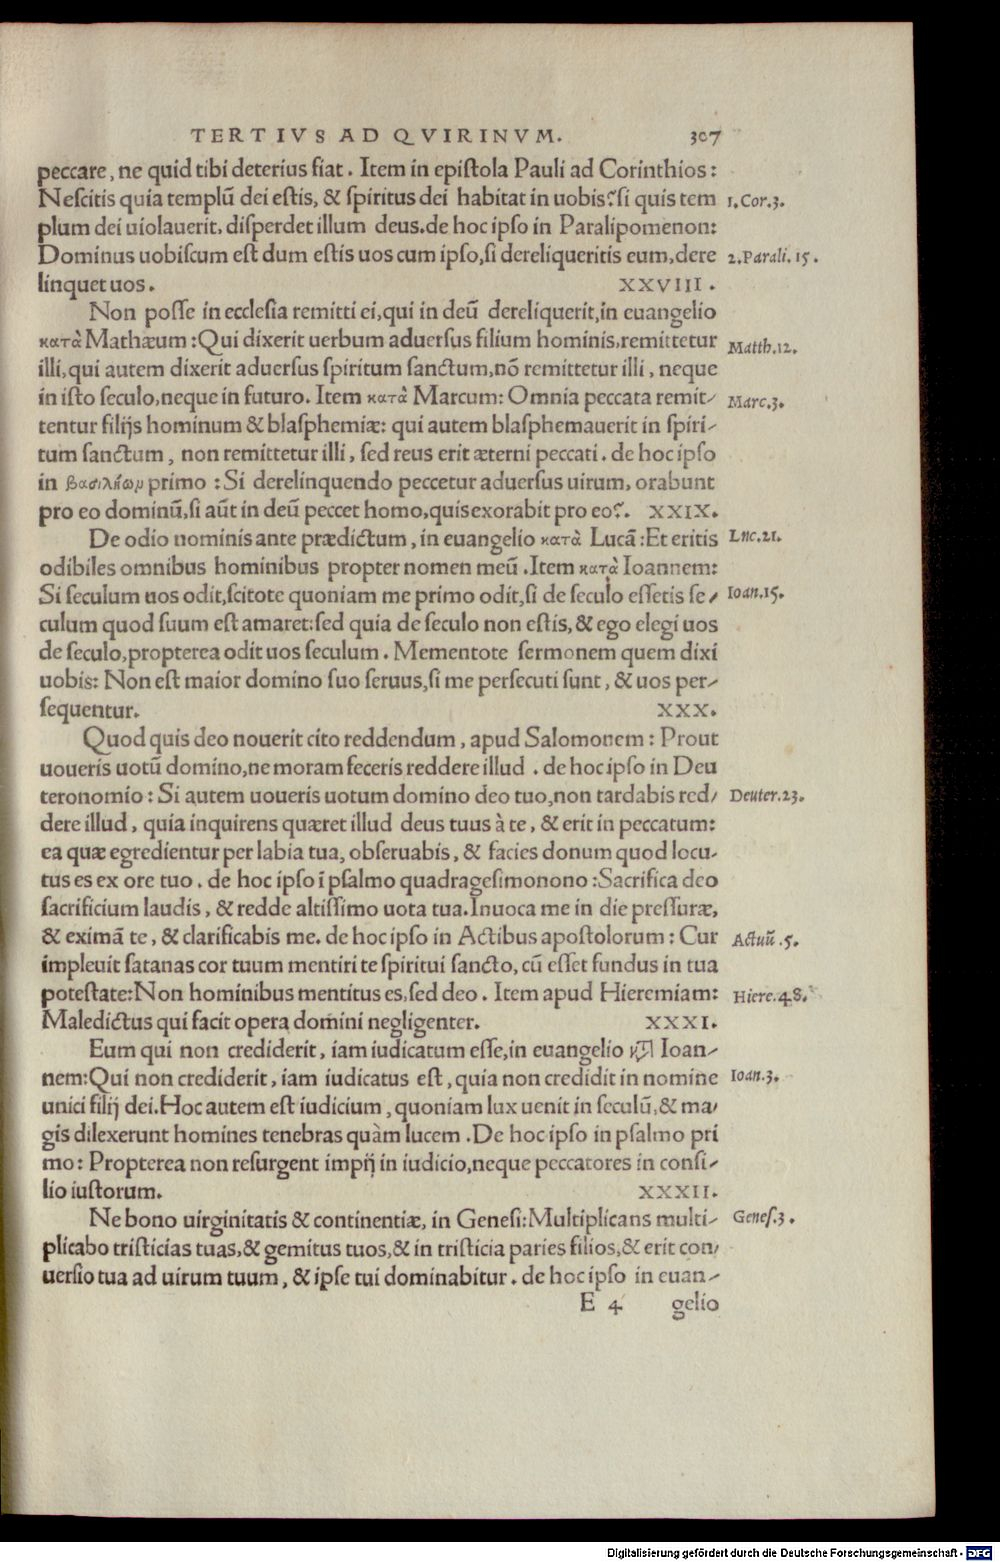 TERTIVS AD QVIRINVM. 307
peccare, ne quid tibi deterius fiat. Item in epistola Pauli ad Corinthios:
Nescitis quia templū dei estis, & spiritus dei habitat in uobis? si quis tem 1. Cor.3.
plum dei uiolauerit, disperdet illum deus. de hoc ipso in Paralipomenon:
Dominus uobiscum est dum estis uos cum ipso, si dereliqueritis eum, dere 2. Parali. 15.
linquet uos. XXVIII.
Non posse in ecclesia remitti ei, qui in deū dereliquerit, in euangelio
κατὰ Mathæum: Qui dixerit uerbum aduersus filium hominis, remittetur Matth.12.
illi, qui autem dixerit aduersus spiritum sanctum, nō remittetur illi, neque
in isto seculo, neque in futuro. Item κατὰ Marcum: Omnia peccata remit- Marc.3.
tentur filijs hominum & blasphemiæ: qui autem blasphemauerit in spiri-
tum sanctum, non remittetur illi, sed reus erit æterni peccati. de hoc ipso
in βασιλήωμ primo: Si derelinquendo peccetur aduersus uirum, orabunt
pro eo dominū, si aūt in deū peccet homo, quis exorabit pro eo?. XXIX.
De odio nominis ante prædictum, in euangelio κατὰ Lucā: Et eritis Luc.21.
odibiles omnibus hominibus propter nomen meū. Item κατὰ Ioannem:
Si seculum uos odit, scitote quoniam me primo odit, si de seculo essetis se- Ioan.15.
culum quod suum est amaret: sed quia de seculo non estis, & ego elegi uos
de seculo, propterea odit uos seculum. Mementote sermonem quem dixi
uobis: Non est maior domino suo seruus, si me persecuti sunt, & uos per-
sequentur. XXX.
Quod quis deo nouerit cito reddendum, apud Salomonem: Prout
uoueris uotū domino, ne moram feceris reddere illud. de hoc ipso in Deu
teronomio: Si autem uoueris uotum domino deo tuo, non tardabis red- Deuter.23.
dere illud, quia inquirens quæret illud deus tuus à te, & erit in peccatum:
ea quæ egredientur per labia tua, obseruabis, & facies donum quod locu-
tus es ex ore tuo. de hoc ipso ī psalmo quadragesimonono: Sacrifica deo
sacrificium laudis, & redde altissimo uota tua. Inuoca me in die pressuræ,
& eximā te, & clarificabis me. de hoc ipso in Actibus apostolorum: Cur Actuū .5.
impleuit satanas cor tuum mentiri te spiritui sancto, cū esset fundus in tua
potestate: Non hominibus mentitus es, sed deo. Item apud Hieremiam: Hiere.48.
Maledictus qui facit opera domini negligenter. XXXI.
Eum qui non crediderit, iam iudicatum esse, in euangelio Ioan-
nem: Qui non crediderit, iam iudicatus est, quia non credidit in nomine Ioan.3.
unici filij dei. Hoc autem est iudicium, quoniam lux uenit in seculū, & ma-
gis dilexerunt homines tenebras quàm lucem. De hoc ipso in psalmo pri
mo: Propterea non resurgent impij in iudicio, neque peccatores in consi-
lio iustorum. XXXII.
Ne bono uirginitatis & continentiæ, in Genesi: Multiplicans multi- Genes.3.
plicabo tristicias tuas, & gemitus tuos, & in tristicia paries filios, & erit con-
uersio tua ad uirum tuum, & ipse tui dominabitur. de hoc ipso in euan-
E 4 gelio
Digitalisierung gefördert durch die Deutsche Forschungsgemeinschaft - DFG